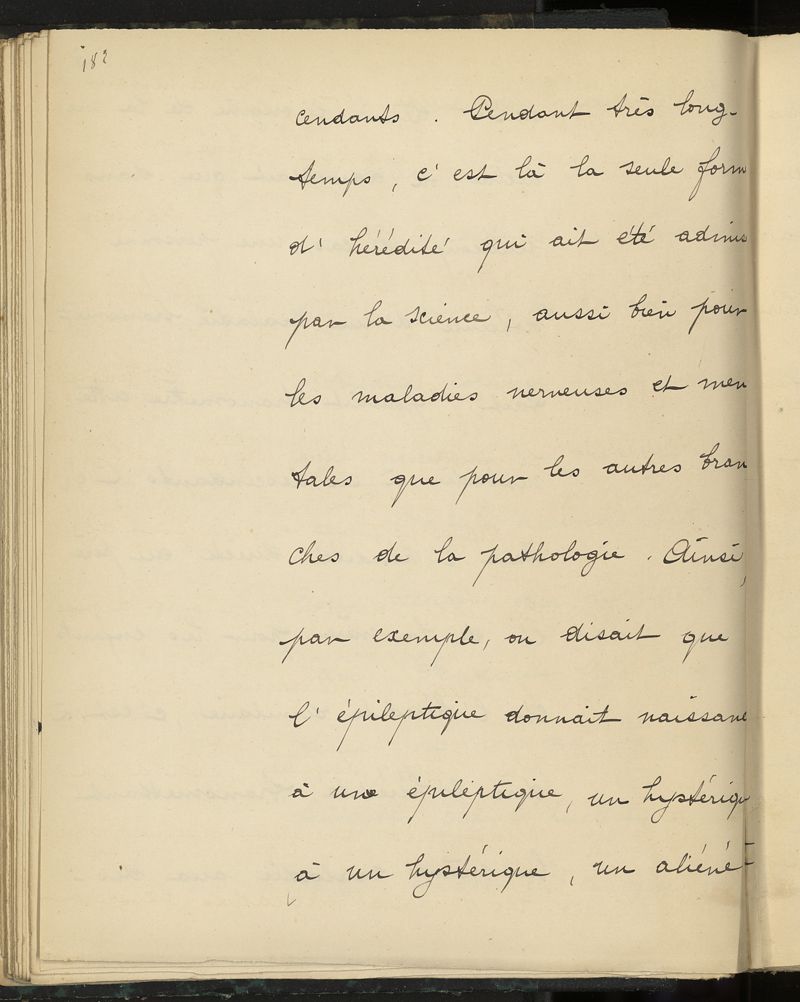 182
cendants. Pendant très long-
temps, c'est là la seule form
d'hérédité qui ait été admis
par la science, aussi bien pour
les maladies nerveuses et men
tales que pour les autres bran
ches de la pathologie. Ainsi,
par exemple, on disait que
l'épileptique donnait naissanc
à une épileptique, un hystériqu
à un hystérique, un aliéné